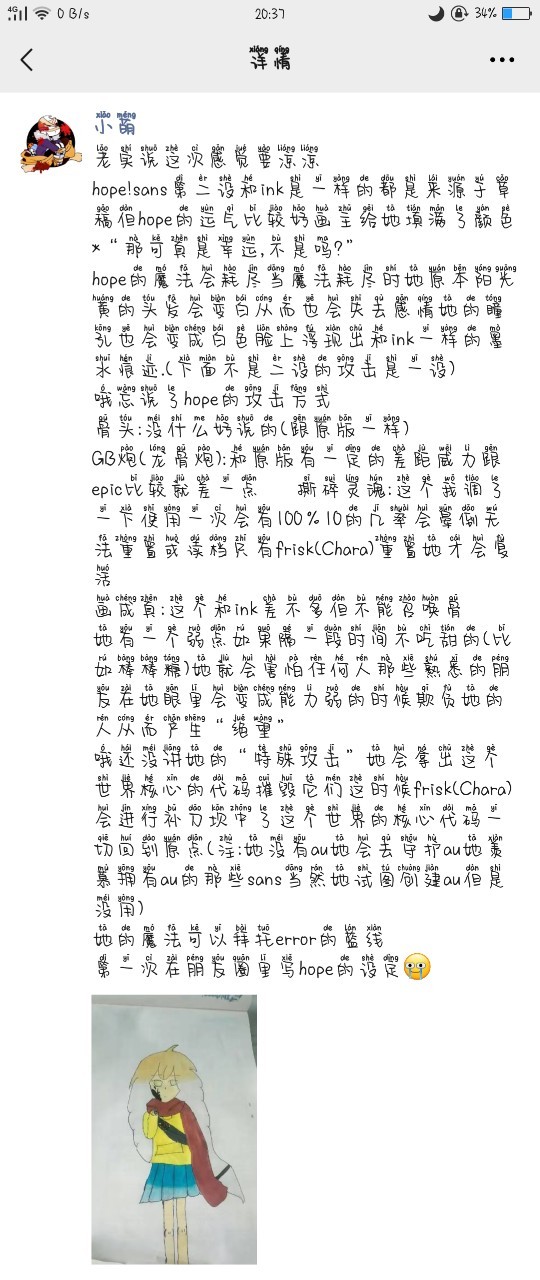 4G 0 B/s 20:37 34%
详情
小萌
老实说这次感觉要凉凉
hope!sans第二设和ink是一样的都是来源于草
稿但hope的运气比较好画主给她填满了颜色
*“那可真是幸运,不是吗?”
hope的魔法会耗尽当魔法耗尽时她原本阳光
黄的头发会变白从而也会失去感情她的瞳
孔也会变成白色脸上浮现出和ink一样的墨
水痕迹.(下面不是二设的攻击是一设)
哦忘说了hope的攻击方式
骨头:没什么好说的(跟原版一样)
GB炮(龙骨炮):和原版有一定的差距威力跟
epic比较就差一点 撕碎灵魂:这个我调了
一下使用一次会有100%10的几率会晕倒无
法重置或读档只有frisk(Chara)重置她才会复
活
画成真:这个和ink差不多但不能召唤骨
她有一个弱点如果隔一段时间不吃甜的(比
如棒棒糖)她就会害怕任何人那些熟悉的朋
友在她眼里会变成能力弱的时候欺负她的
人从而产生“绝望”
哦还没讲她的“特殊攻击”她会拿出这个
世界核心的代码摧毁它们这时候frisk(Chara)
会进行补刀砍中了这个世界的核心代码一
切回到原点(注:她没有au她会去守护au她羡
慕拥有au的那些sans当然她试图创建au但是
没用)
她的魔法可以拜托error的蓝线
第一次在朋友圈里写hope的设定😭